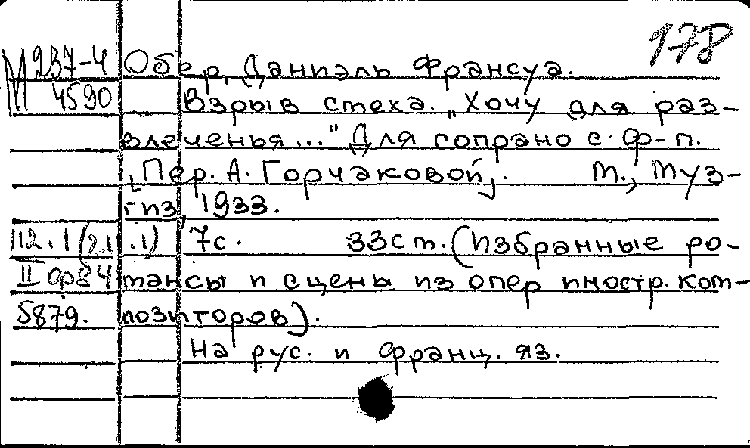 178
М 237-4 Обер, Даниэль Франсуа.
4590 Взрыв смеха. „Хочу для раз-
влеченья..." Для сопрано с ф-п.
[Пер. А. Горчаковой]. М., Муз-
гиз, 1933.
112.1(2.1.1) 7с. 33см. (Избранные ро-
II ор84 мансы и сцены из опер иностр. ком-
5879. позиторов).
На рус. и франц. яз.